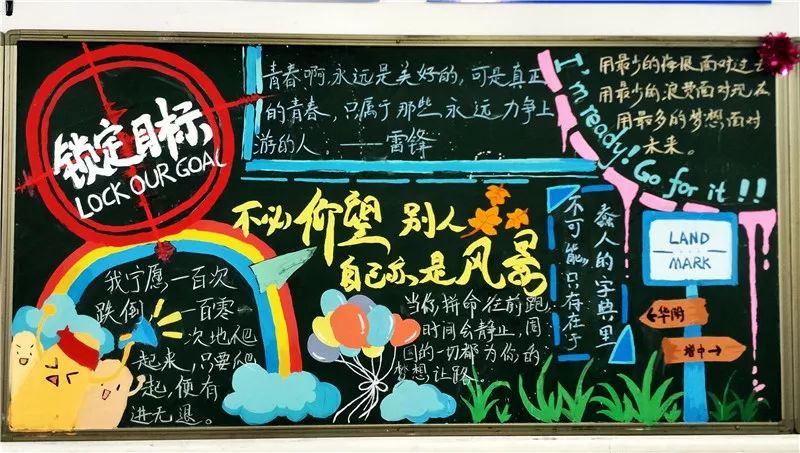 锁定目标
LOCK OUR GOAL
青春啊,永远是美好的,可是真正
的青春,只属于那些永远力争上
游的人。——雷锋
I'm ready! Go for it!!
用最少的悔恨面对过去
用最少的浪费面对现在
用最多的梦想面对
未来。
不必仰望别人
自己亦是风景
我宁愿一百次
跌倒,一百零
次地爬
起来,只要爬
起,便有
进无退。
当你拼命往前跑
时间会静止,周
围的一切都为你的
梦想让路。
不可能,只存在于
蠢人的字典里
LAND
MARK
华附
增中